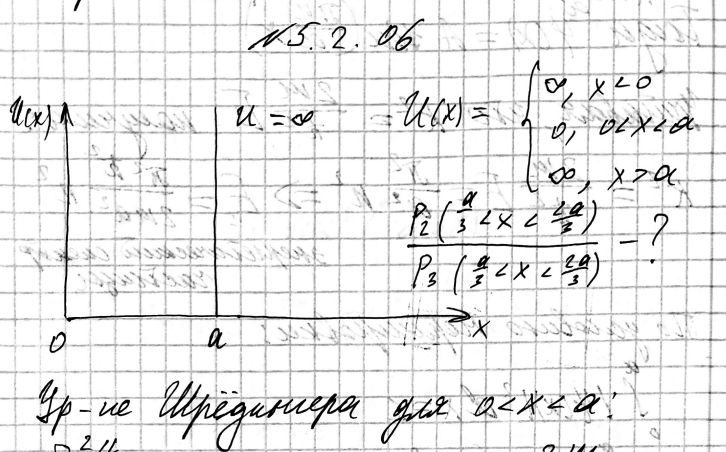 №5.2.06
U(x)
U = ∞
U(x) = { ∞, x < 0
0, 0 < x < a
∞, x > a
P₂ (a/3 < x < 2a/3) / P₃ (a/3 < x < 2a/3) - ?
0 a x
Ур-ие Шрёдингера для 0 < x < a: